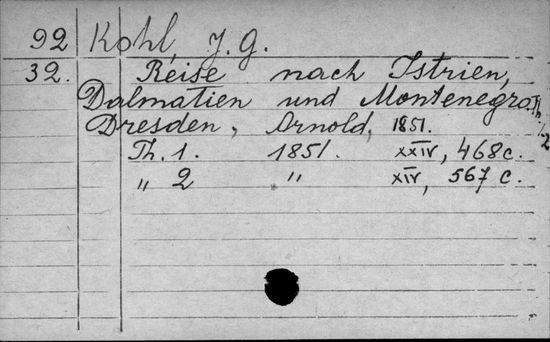 92 Kohl, J. G.
32. Reise nach Istrien,
Dalmatien und Montenegro. Th. 1/2
Dresden, Arnold, 1851.
Th. 1. 1851. XXIV, 468 c.
„ 2 „ XIV, 567 c.